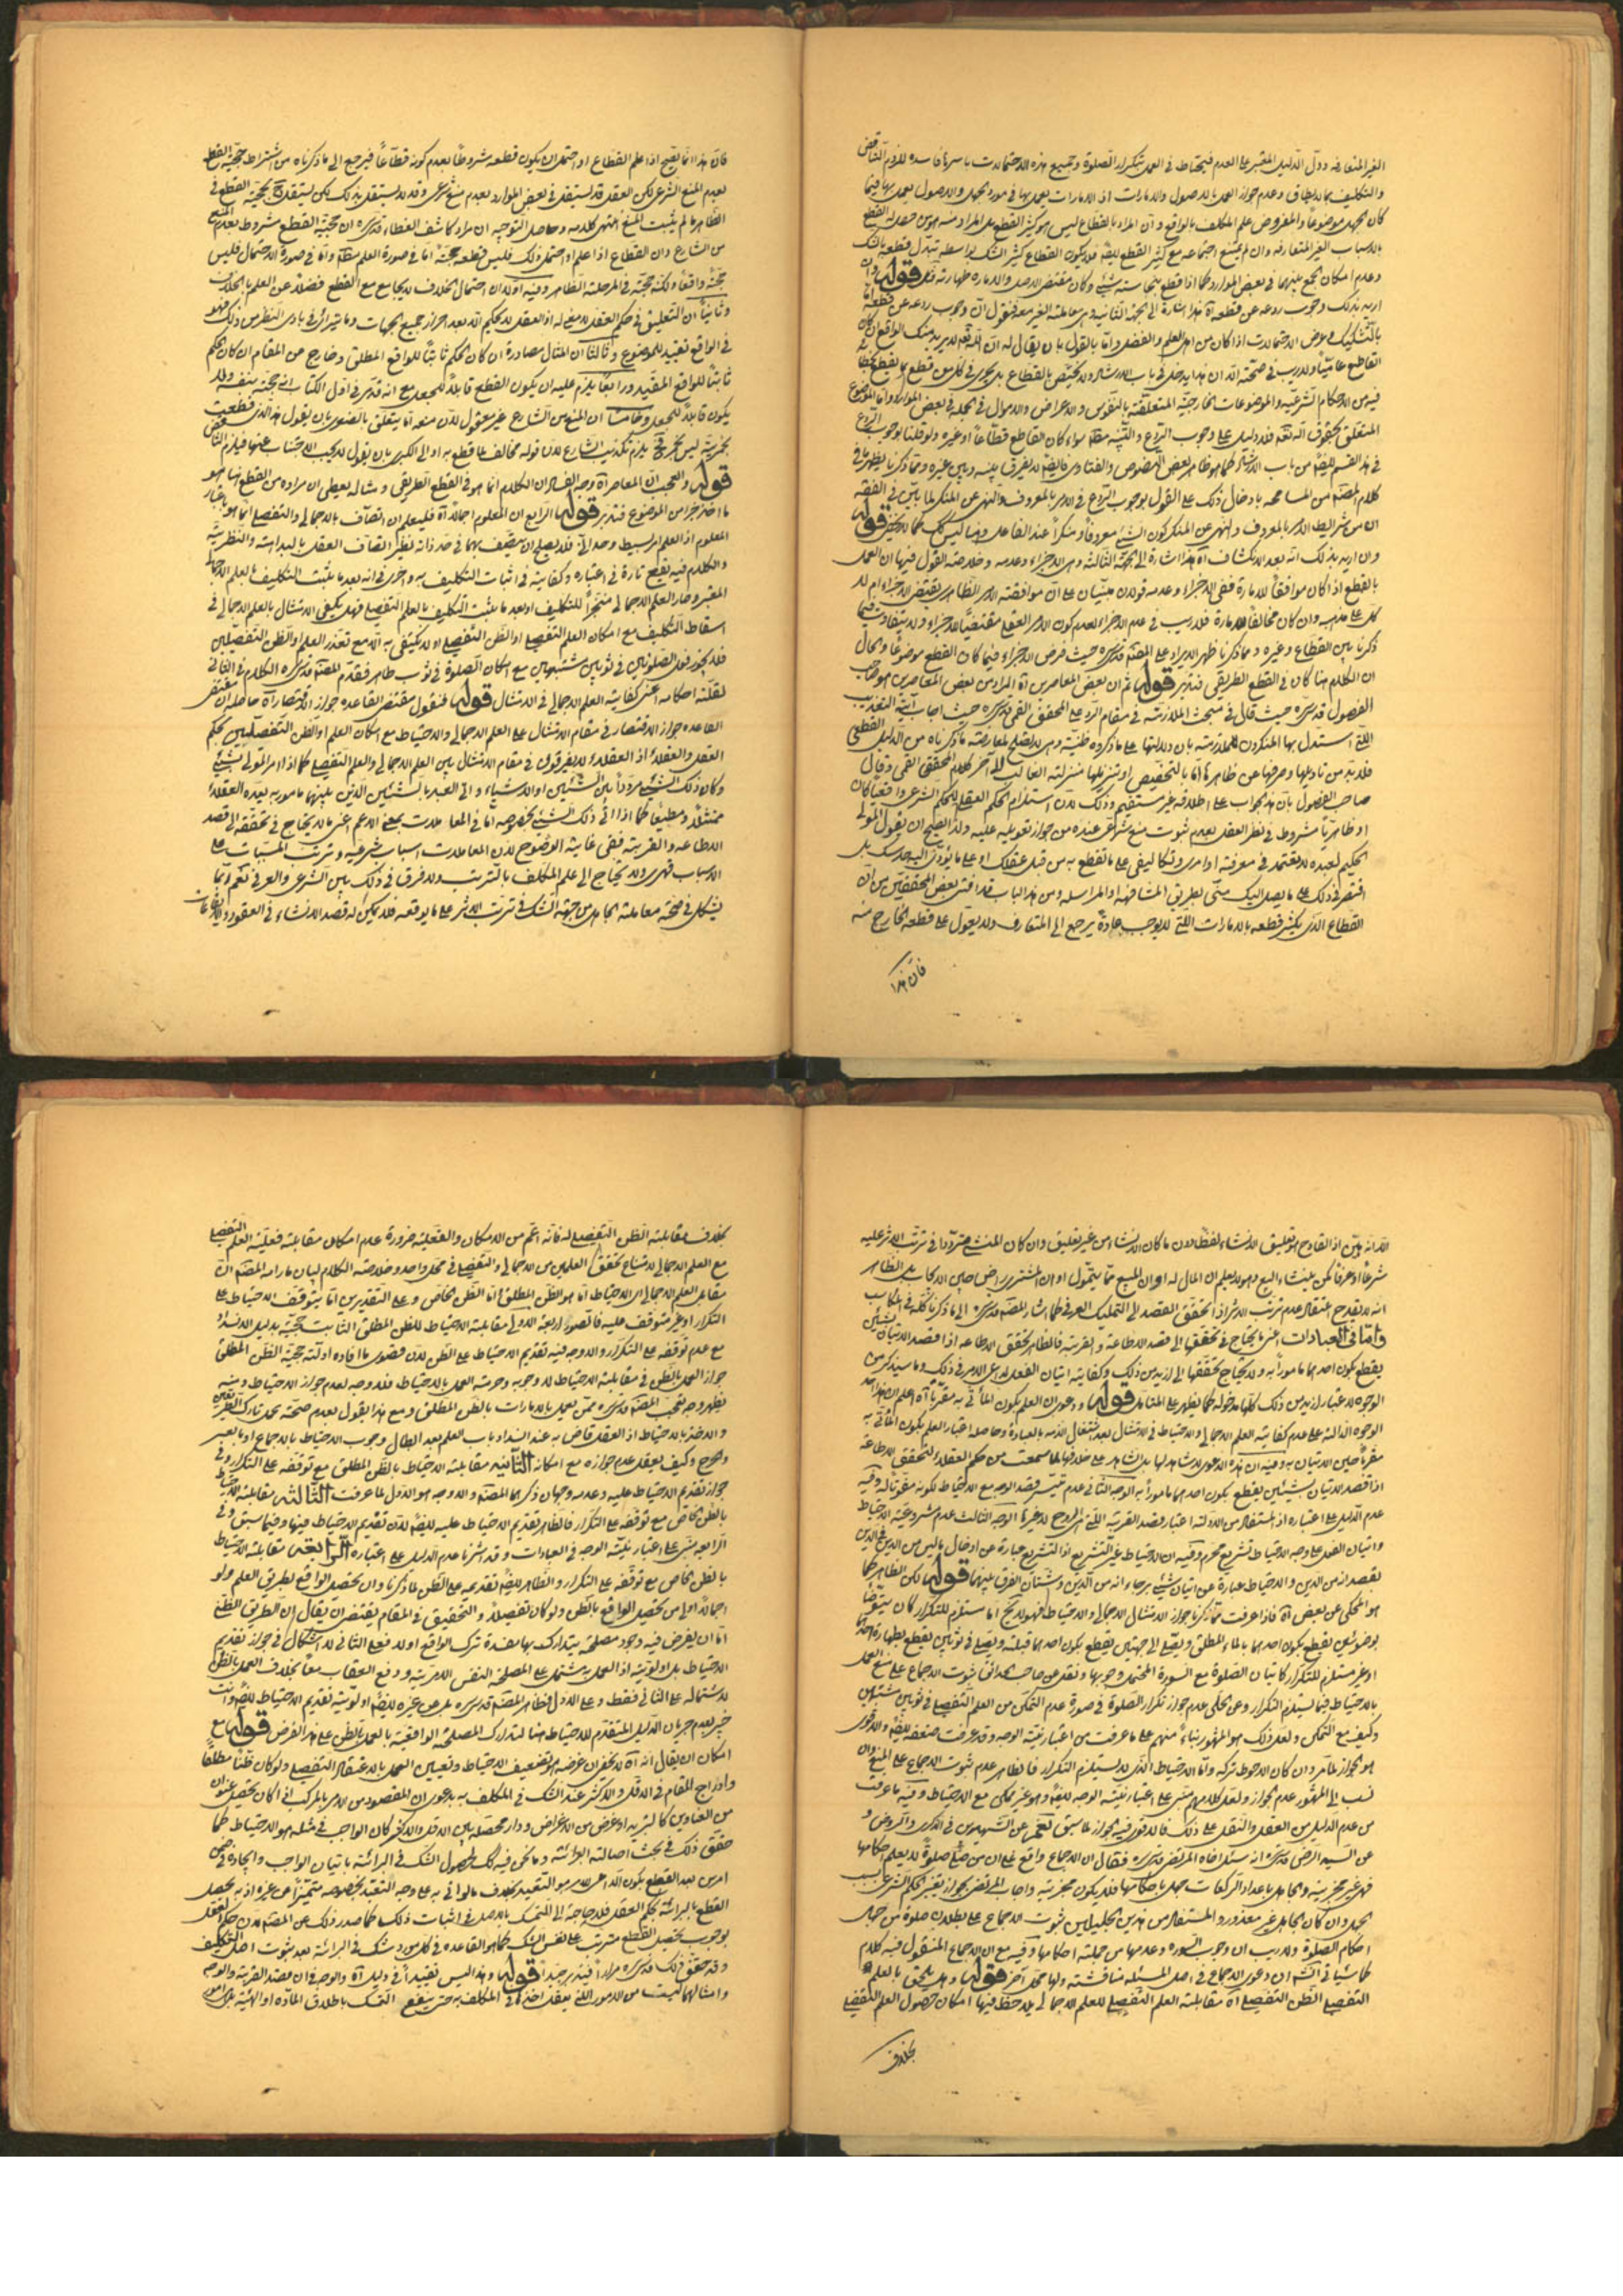 الغير المتعارفه ودلّ الدّليل المعتبر على العدم فيحتاط في العمل بتكرار الصّلوة وجميع هذه الاحتمالات باسرها فاسده للزوم التناقض
والتكليف بما لا يطاق وعدم جواز العمل بالاصول والامارات اذ الامارات يعمل بها في مورد الجهل والاصول يعمل بها فيما
كان الجهل موضوعاً والمفروض علم المكلف بالواقع وانّ المراد بالقطاع ليس هو كثير القطع بل المراد منه هو من حصل له القطع
بالاسباب الغير المتعارفه وان لم يمتنع اجتماعه مع كثير القطع
وعدم امكان الجمع بينهما في بعض الموارد كما اذا قطع بنجاسته شيئى وكان مقتضى الاصل والاماره طهارته قوله وان
اريد بذلك وجوب ردعه عن قطعه آه هذا اشارة الى الجهة الثانيه
بالتشكيك وعرض الاحتمالات اذا كان من اهل العلم والفضل وامّا بالقول بان يقال له انّ اللّه تعه لا يريد منك الواقع
القاطع عامياً ولا ريب في صحته الّا ان هذا يدخل في باب الارشاد ولا يختصّ بالقطاع بل يجرى في كل من قطع
فيه من الاحكام الشّرعيّه والموضوعات الخارجيّه المتعلقة بالنفوس والاعراض والاموال في الجمله في بعض الموارد وامّا الموضوع
المتعلق بحقوق اللّه تعه فلا دليل على وجوب الرّدع والتنبّه سواء كان القاطع قطّاعاً او غيره ولو قلنا بوجوب الرّدع
في هذا القسم من باب الارشاد كما هو ظاهر بعض النصوص والفتاوى لا يفرق بينه وبين غيره وممّا ذكرنا يظهر ما في
كلام المصنّف من المسامحه بادخال ذلك على القول بوجوب الرّدع في الامر بالمعروف والنهى عن المنكر لما بيّن في الفقه
ان من شرائط الامر بالمعروف والنهى عن المنكر كون الشيئ معروفاً ومنكراً عند الفاعل وهنا ليس كك كما لا يخفى قوله
وان اريد بذلك انه بعد الانكشاف آه هذا اشارة الى الجهة الثالثه وهى الاجزاء وعدمه وخلاصة القول فيها ان العمل
بالقطع اذا كان موافقاً للامارة ففى الاجزاء وعدمه قولان مبنيّان على انّ موافقته الامر الظاهرى يقتضى الاجزاء ام لا
كل على مذهبه وان كان مخالفاً للامارة فلا ريب في عدم الاجزاء لعدم كون الامر العقلى مقتضياً للاجزاء ولا يتفاوت فيما
ذكرنا بين القطاع وغيره وممّا ذكرنا ظهر الايراد على المصنّف قدس سره حيث فرض الاجزاء فيما كان القطع موضوعاً والحال
ان الكلام هنا كان في القطع الطريقى فتدبّر قوله ثم ان بعض المعاصرين آه المراد من بعض المعاصرين هو صاحب
الفصول قدس سره حيث قال في مبحث الملازمة في مقام الرد على المحقق القمى قدس سره حيث اجاب
اللّتى استدل بها المنكرون للملازمة بان دلالتها على ما ذكروه ظنيّة وهى لا تصلح لمعارضته ما ذكرناه من الدّليل القطعى
فلا بد من تاويلها وصرفها عن ظاهرها امّا بالتخصيص او تنزيلها منزلته الغالب الى آخر كلام المحقق القمى وقال
صاحب الفصول بانّ هذا الجواب على اطلاقه غير مستقيم وذلك لانّ استلزام الحكم العقلى للحكم الشرعى واقعيّاً كان
او ظاهرياً مشروط في نظر العقل بعدم ثبوت منع شرعى عنده من جواز تعويله عليه ولذا يصح ان يقول المولى
الحكيم لعبده لا تعتمد في معرفة اوامرى وتكاليفى على ما تقطع به من قبل عقلك او على ما يؤدّى اليه حدسك بل
اقتصر في ذلك على ما يصل اليك منّى بطريق المشافهه او المراسله ومن هذا الباب ما افتى بعض المحققين من انّ
القطاع الذى يكثر قطعه بالامارات اللّتى لا يوجب عادةً يرجع الى المتعارف ولا يعوّل على قطعه الخارج منه
فانّ هذا
فانّ هذا انّما يصح اذا علم القطاع او احتمل ان يكون قطعه مشروطاً بعدم كونه قطّاعاً فيرجع الى ما ذكرناه من اشتراط حجيّة القطع
بعدم المنع الشرعى لكن العقل قد يستقل في بعض الموارد بعدم منع شرعى وقد لا يستقل بذلك لكن يستقل بحجيّة القطع في
الظاهر ما لم يثبت المنع انتهى كلامه وحاصل التوجيه ان مراد كاشف الغطاء قدس سره ان حجيّة القطع مشروط بعدم المنع
من الشارع وان القطاع اذا علم او احتمل ذلك فليس قطعه حجّة امّا في صورة العلم وامّا في صورة الاحتمال فليس
حجّةً واقعاً ولكنّه حجّة في المرحلته الظاهر وفيه اوّلاً ان احتمال الخلاف لا يجامع مع القطع فضلاً عن العلم بالخلاف
وثانياً ان التعليق في حكم العقل لا معنى له اذ العقل لا يحكم الّا بعد احراز جميع الجهات وما يترائى في بادى النظر من ذلك فهو
في الواقع تقييد للموضوع وثالثاً ان المثال مصادرة ان كان الحكم ثابتاً للواقع المطلق وخارج عن المقام ان كان الحكم
ثابتاً للواقع المقيّد ورابعاً يلزم عليه ان يكون القطع قابلاً للجعل مع انه قدس سره في اوّل الكتاب انه حجّة بنفسه ولا
يكون قابلاً للجعل وخامساً ان المنع من الشارع غير معقول لانّ منعه امّا يتعلق بالصغرى بان يقول هذا الذى قطعت
بخمريّته ليس بخمر فيلزم تكذيب الشارع لانّ قوله مخالف لما قطع به او الى الكبرى بان يقول لا يجب الاجتناب عنها فيلزم التناقض
قوله والعجب انّ المعاصر آه وجه ان الكلام انّما هو في القطع الطريقى ومثاله يعطى ان مراده من القطع انّما هو
ما اخذ جزء من الموضوع فتدبّر قوله الرابع ان المعلوم اجمالاً آه فليعلم ان اتصاف بالاجمالى والتفصيلى انّما هو باعتبار
المعلوم اذ العلم امر بسيط وحدانى فلا يصلح ان يتصف بهما في حد ذاته نظير اتصاف العقل بالبداهته والنظريّه
والكلام فيه يقع تارة في اعتباره وكفايته في اثبات التكليف به واخرى في انه بعد ما يثبت التكليف بالعلم الاجمالى
المعتبر وصار العلم الاجمالى منجّزاً للتكليف او بعد ما يثبت التكليف بالعلم التفصيلى فهل يكفى الامتثال بالعلم الاجمالى في
اسقاط التكليف مع امكان العلم التفصيلى او الظن التفصيلى او لا يكتفى به الّا مع تعذر العلم او الظن التفصيلين
فلا يجوز فعل الصلوتين في ثوبين مشتبهين مع امكان الصلوة في ثوب طاهر فقدّم المصنّف قدس سره الكلام في الثانى
لقلّته احكامه اعنى كفاية العلم الاجمالى في الامتثال قوله فنقول مقتضى القاعده جواز الاقتصار آه حاصله ان مقتضى
القاعده جواز الاقتصار في مقام الامتثال على العلم الاجمالى والاحتياط مع امكان العلم او الظن التفصيليين بحكم
العقل والعقلاء اذ العقلاء لا يفرقون في مقام الامتثال بين العلم الاجمالى والعلم التفصيلى كما اذا امر المولى بشيئ
وكان ذلك الشيئ مردّداً بين الشيئين او الاشياء واتى العبد بالشيئين الّذين بينهما مامور به يعده العقلاء
ممتثلاً ومطيعاً كما اذا اتى ذلك الشيئ بخصوصه امّا في المعاملات بمعنى الاعم اعنى ما لا يحتاج في تحققه الى قصد
الاطاعه والقربته ففى غاية الوضوح لانّ المعاملات اسباب شرعيّه وترتب المسبّبات على
الاسباب قهرى ولا يحتاج الى علم المكلف بالترتب ولا فرق في ذلك بين الشرعى والعرفى نعم ربّما
يشكل في صحّة معاملته الجاهل من جهة الشك في ترتب الاثر على ما يوقعه فلا يمكن له قصد الانشاء في العقود والايقاعات
الّا انه بيّن اذ القادح هو تعليق الانشاء لفظاً لا ما كان الانشاء من غير تعليق وان كان المنشئ متردّداً في ترتب الاثر عليه
شرعاً او عرفاً كمن ينشئ البيع وهو لا يعلم ان المال له او ان المبيع ممّا يتموّل او ان المشترى راض حين الايجاب بل الظاهر
انه لا يقدح اعتقاد عدم ترتب الاثر اذا تحقق القصد الى التمليك العرفى كما اشار المصنّف قدس سره الى ما ذكرنا كلّه في المكاسب
وامّا في العبادات اعنى ما يحتاج في تحققها الى قصد الاطاعة والقربته فالظاهر تحقق الاطاعه اذا قصد الاتيان بشيئين
يقطع بكون احدهما مامور به ولا يحتاج تحققها الى ازيد من ذلك وكفايته اتيان الفعل لداعى الامر في ذلك وما سيذكر من
الوجوه لاعتبار ازيد من ذلك كلّها مدخوله كما يظهر على المتامل قوله ودعوى ان العلم بكون المأتى به مقرّباً آه اعلم ان هذا احد
الوجوه الدّالته على عدم كفاية العلم الاجمالى والاحتياط في الامتثال بعد اشتغال الذّمه بالعبادة وحاصله اعتبار العلم بكون المأتى به
مقرّباً حين الاتيان به وفيه ان هذه الدعوى لا شاهد لها بل الشاهد على خلافها لما سمعت من حكم العقلاء لتحقق الاطاعة
اذا قصد الاتيان بشيئين يقطع بكون احدهما مامور به الوجه الثانى عدم تيسّر قصد الوجه مع الاحتياط لكونه مفوّتاً له وفيه
عدم الدليل على اعتباره اذ المستفاد من الادلته اعتبار قصد القربته اللّتى هى الروح لا غيرها الوجه الثالث عدم مشروعيّة الاحتياط
واتيان العمل على وجه الاحتياط تشريع محرّم وفيه ان الاحتياط غير التشريع اذ التشريع عبارة عن ادخال ما ليس من الدين في الدين
بقصد انه من الدين والاحتياط عبارة عن اتيان شيئى برجاء انه من الدّين وشتان الفرق بينهما قوله لكن الظاهر كما
هو المحكى عن بعض آه فاذا عرفت ممّا ذكرنا جواز الامتثال الاجمالى والاحتياط فهو لا يخ امّا مستلزم للتكرار كان يتوضّأ
بوضوئين يقطع بكون احدهما بالماء المطلق ويصلّى الى جهتين يقطع بكون احدهما قبلته ويصلى في ثوبين يقطع بطهارة احدهما
او غير مستلزم للتكرار كاتيان الصلوة مع السورة المحتمل وجوبها ونقل عن صاحب الحدائق ثبوت الاجماع على منع العمل
بالاحتياط فيما يستلزم التكرار وعن الحلّى عدم جواز تكرار الصلوة في صورة عدم التمكن من العلم التفصيلى في ثوبين مشتبهين
وكيف مع التمكن ولعل ذلك هو المشهور بناءً منهم على ما عرفت من اعتبار نيّة الوجه وقد عرفت ضعفه والاقوى
هو الجواز ما مرّ وان كان الاحوط تركه وامّا الاحتياط الّذى لا يستلزم التكرار فالظاهر عدم ثبوت الاجماع على المنع وان
نسب الى المشهور عدم الجواز ولعل كلامهم مبنى على اعتبار نيّة الوجه وهو غير ممكن مع الاحتياط وفيه ما عرفت
من عدم الدليل من العقل والنقل على ذلك فالاقوى فيه الجواز لما سبق نعم عن الشهيدين في الذكرى والروض و
عن السيّد الرضى قدس سره اذ سئل اخاه المرتضى قدس سره فقال ان الاجماع واقع على ان من صلى صلوةً لا يعلم احكامها
فهى غير مجزية والجاهل باعداد الركعات جهل باحكامها فلا يكون مجزية واجاب المرتضى بجواز تغيّر الحكم الشرعى بسبب
الجهل وان كان الجاهل غير معذور والمستفاد من هذين الجليلين ثبوت الاجماع على بطلان صلوة من جهل
احكام الصلوة ولا ريب ان وجوب السوره وعدمها من جملته احكامها وفيه مع ان الاجماع المنقول فيه كلام
كما سيأتى ان دعوى الاجماع في اصل المسئله مناقشته ولها محل آخر قوله وهل يلحق بالعلم
التفصيلى الظن التفصيلى آه مقابلة العلم التفصيلى للعلم الاجمالى يلاحظ فيها امكان حصول العلم التفصيلى
بخلاف
بخلاف مقابلته الظن التفصيلى له فانه اعمّ من الامكان والفعليّة ضرورة عدم امكان مقابلته فعليّة العلم التفصيلى
مع العلم الاجمالى لامتناع تحقق العلمين من الاجمالى والتفصيلى في محل واحد وخلاصته الكلام لبيان مرامه المصنّف انّ
مقابل العلم الاجمالى اى الاحتياط امّا هو الظن المطلق او الظن الخاص وعلى التقديرين امّا يتوقف الاحتياط على
التكرار او غير متوقف عليه فالصور اربعة الاولى مقابلة الاحتياط للظن المطلق الثابت حجيّته بدليل الانسداد
مع عدم توقفه على التكرار والاوجه فيه تقديم الاحتياط على الظن لانّ قصوى ما افاده ادلّة حجيّة الظن المطلق
جواز العمل بالظن في مقابلة الاحتياط لا وجوبه وحرمته العمل بالاحتياط فلا وجه لعدم جواز الاحتياط ومنه
يظهر وجه تعجب المصنّف قدس سره ممّن يعمل بالامارات بالظن المطلق ومع هذا يقول بعدم صحّة عمل تارك الطريقين
والاخذ بالاحتياط اذ العقل قاض به عند انسداد باب العلم بعد ابطال وجوب الاحتياط بالاجماع او بالعسر
والحرج وكيف يعقل عدم جوازه مع امكانه الثانيه مقابلة الاحتياط بالظن المطلق مع توقفه على التكرار وفى
جواز تقديم الاحتياط عليه وعدمه وجهان ذكرهما المصنّف والاوجه هو الاوّل لما عرفت الثالثه مقابلة الاحتياط
بالظن الخاص مع توقفه على التكرار فالظاهر تقديم الاحتياط عليه لانّ تقديم الاحتياط فيها وفيما سبق وفى
الرابعه مبنى على اعتبار نيّة الوجه في العبادات وقد اشرنا عدم الدليل على اعتباره الرابعة مقابلة الاحتياط
بالظن الخاص مع توقفه على التكرار والظاهر تقديمه على الظن لما ذكرنا وان تحصيل الواقع بطريق العلم ولو
اجمالاً اولى من تحصيل الواقع بالظن ولو كان تفصيلاً والتحقيق في المقام يقتضى ان يقال ان الطريق الظنّى
امّا ان يفرض فيه وجود مصلحة يتدارك بها مفسدة ترك الواقع او لا فعلى الثانى لا اشكال في جواز تقديم
الاحتياط بل اولويّته اذ العمل به مشتمل على المصلحة النفس الامريّه ودفع العقاب معاً بخلاف العمل بالظن
لاشتماله على الثانى فقط وعلى الاوّل فظاهر المصنّف قدس سره بل وعن غيره اولويّة تقديم الاحتياط وانت
خبير بعدم جريان الدليل المتقدم للاحتياط هنا لتدارك المصلحة الواقعيّة بالعمل بالظن على هذا الفرض قوله مع
امكان ان يقال انه آه لا يخفى ان غرضه تضعيف الاحتياط وتعيين العمل بالاعتقاد التفصيلى ولو كان ظنّاً مطلقاً
وادراج المقام في الاقل والاكثر عند الشك في المكلف به بدعوى ان المقصود من الامر بالمركب اذا كان تحصيل عنوان
من العناوين كالتبريد او غرض من الاغراض ودار محصّله بين الاقل والاكثر كان الواجب في مثله هو الاحتياط كما
حقق ذلك في بحث اصالة البرائة وما نحن فيه كك لحصول الشك في البرائة باتيان الواجب وايجاده في ضمن
امرين بعد القطع بكون الداعى للامر هو التعبّد بخلاف ما لو اتى به على وجه التعبّد بخصوصه متميّزاً عن غيره اذ به يحصل
القطع بالبرائة بحكم العقل فلا حاجة الى التمسّك بالاصل في اثبات ذلك كما صدر ذلك عن المصنّف لانّ حكم العقل
بوجوب تحصيل القطع مترتب على نفس الشك كما هو القاعده في كل مورد شك في البرائة بعد ثبوت اصل التكليف
وقد حقق ذلك قدس سره مراراً فتدبّر جيداً قوله وهذا ليس تقييداً في دليل آه والوجه فيه ان قصد القربة والوجه
وامثالهما ليست من الامور اللّتى يعقل اخذها في المكلف به حتى ينفع التمسّك باطلاق المادّه او الهيئة بل هى امور